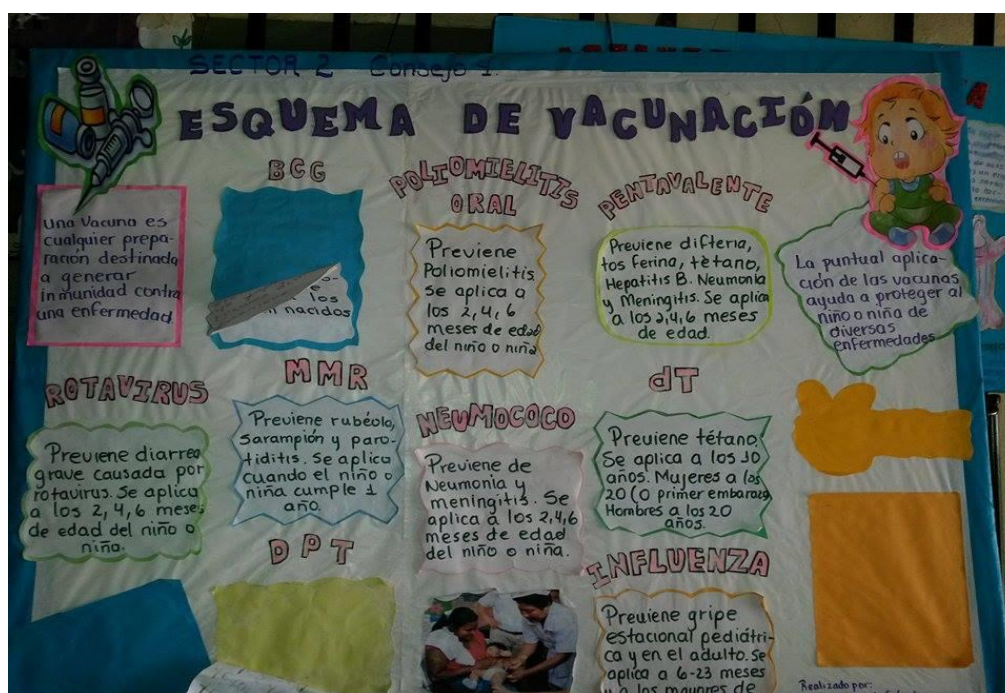 SECTOR 2 Consejo 1.
ESQUEMA DE VACUNACIÓN
Una Vacuna es
cualquier prepa-
ración destinada
a generar
inmunidad contra
una enfermedad.
BCG
los
nacidos
POLIOMIELITIS
ORAL
Previene
Poliomielitis
Se aplica a
los 2,4,6
meses de edad
del niño o niña
PENTAVALENTE
Previene difteria,
tos ferina, tètano,
Hepatitis B. Neumonía
y Meningitis. Se aplica
a los 2,4,6 meses
de edad.
La puntual aplica-
ción de las vacunas
ayuda a proteger al
niño o niña de
diversas
enfermedades
ROTAVIRUS
Previene diarrea
grave causada por
rotavirus. Se aplica
a los 2,4,6 meses
de edad del niño o
niña.
MMR
Previene rubéola,
sarampión y paro-
tiditis. Se aplica
cuando el niño o
niña cumple 1
año.
NEUMOCOCO
Previene de
Neumonía y
meningitis. Se
aplica a los 2,4,6
meses de edad
del niño o niña.
dT
Previene tétano,
Se aplica a los 10
años. Mujeres a los
20 (o primer embarazo)
Hombres a los 20
años.
DPT
INFLUENZA
Previene gripe
estacional pediátri-
ca y en el adulto. Se
aplica a 6-23 meses
y a los mayores de
Realizado por: